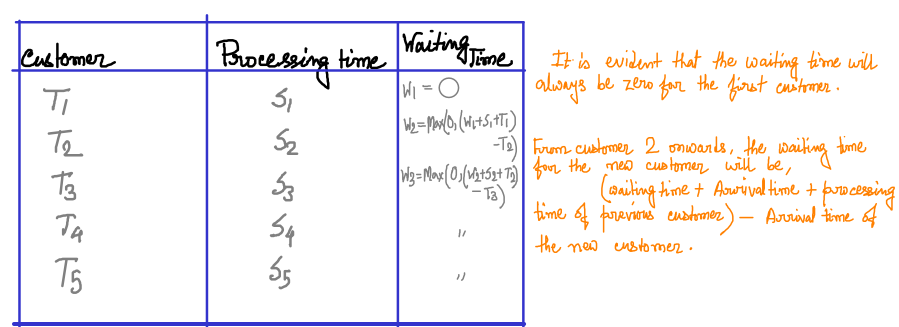 Customer Processing time Waiting Time
T1 S1 W1 = 0
T2 S2 W2=Max(0,(W1+S1+T1)
-T2)
T3 S3 W3=Max(0,(W2+S2+T2)
-T3)
T4 S4 "
T5 S5 "
It is evident that the waiting time will
always be zero for the first customer.
From customer 2 onwards, the waiting time
for the new customer will be,
(waiting time + Arrival time + processing
time of previous customer) - Arrival time of
the new customer.